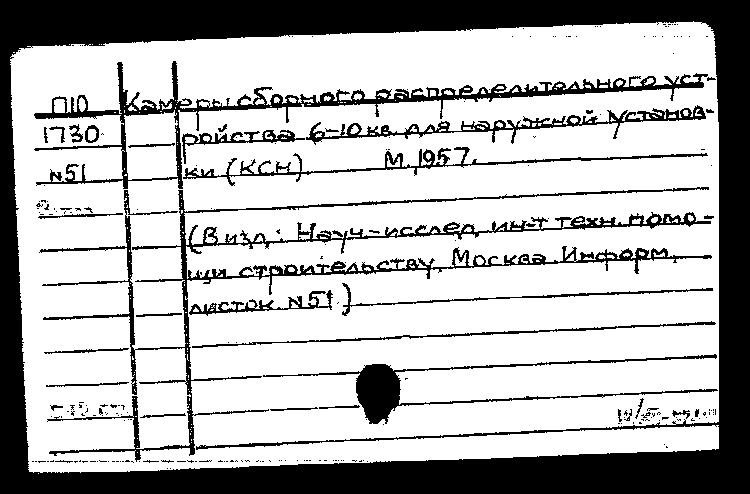 П10 Камеры сборного распределительного уст-
1730 ройства 6-10 кв. для наружной установ-
N51 ки (КСН). М., 1957.
(В изд.: Науч.-исслед. ин-т техн. помо-
щи строительству. Москва. Информ.
листок. N51)